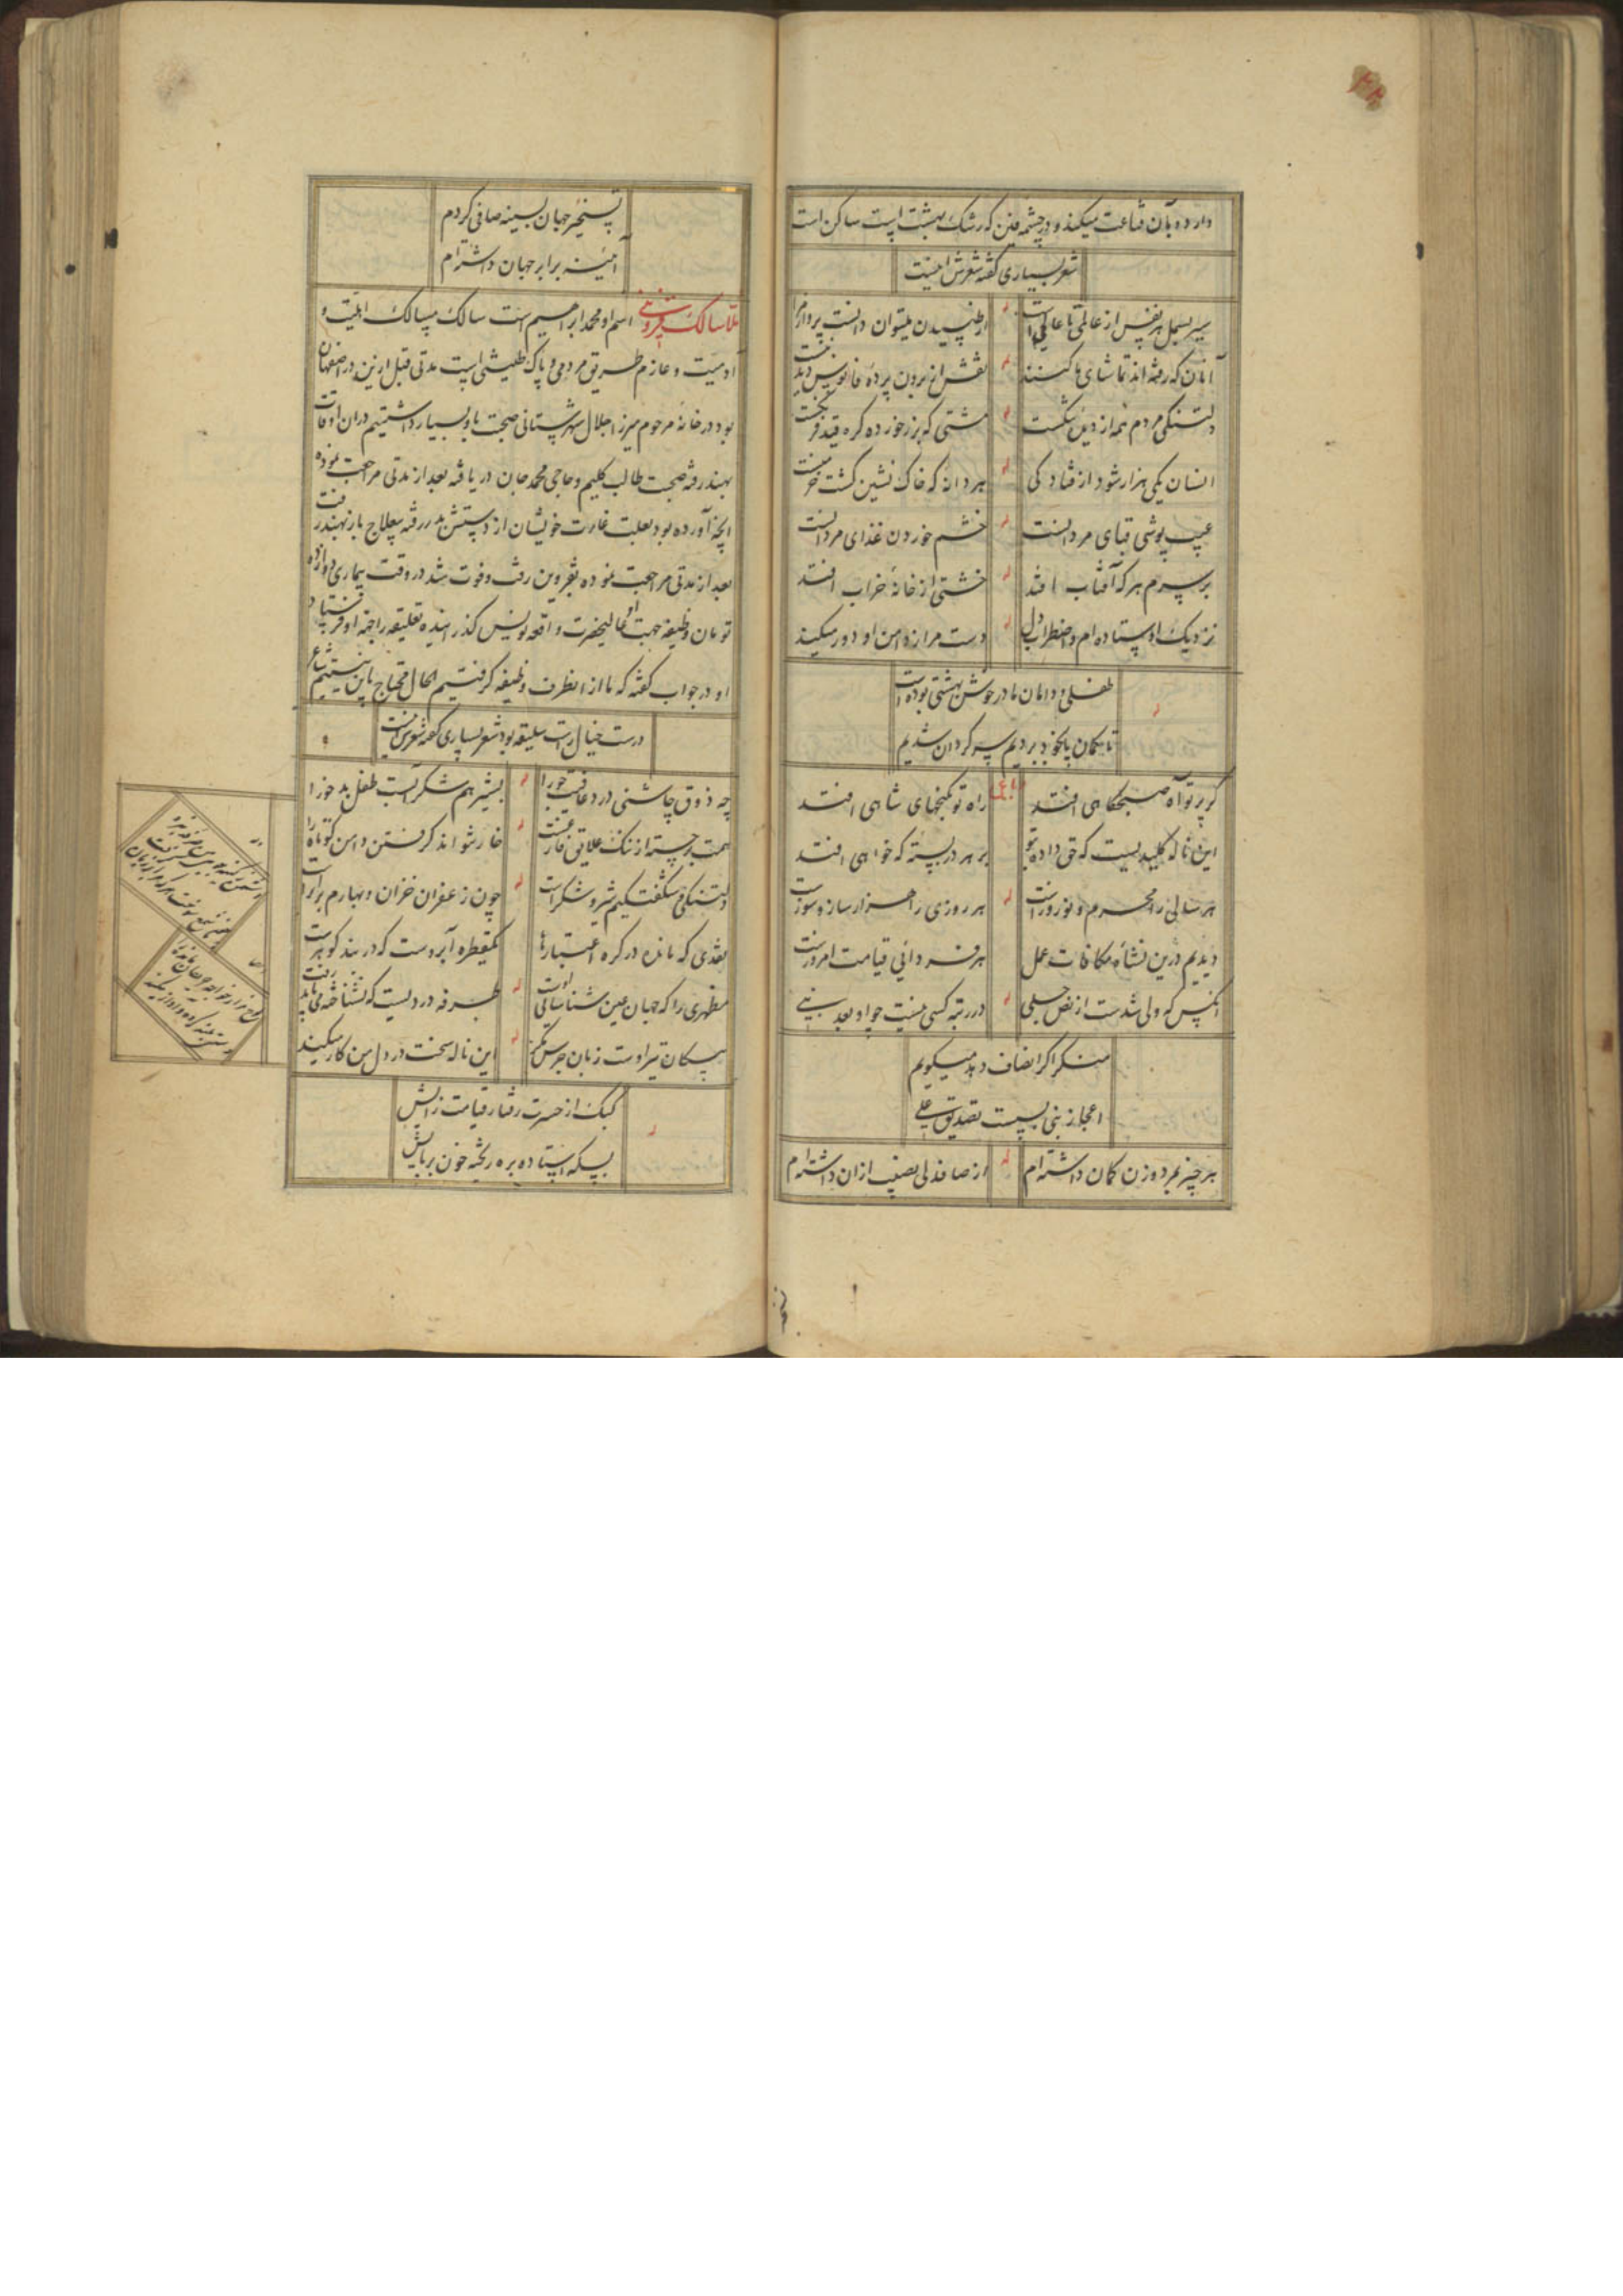 دارد و بآن قناعت میکند و در چشمه فین که رشک بهشت است ساکن است
شعر بسیاری گفته شعرش اینست
سیر بسمل هر نفس از عالمی تا عالمی است
از طپیدن میتوان دانست پرواز مرا
آنان که رفته اند تماشای ما کنند
نقش از برون پرده فانوس دیدنیست
دلتنگی مردم همه از ذیل شکست
مشتی که بزر خورده گره قید فرنگست
انسان یکی هزار شود از فتادگی
هر دانه که خاک نشین گشت خرمنست
عیب پوشی قبای مردانست
خشم خوردن غذای مردانست
بر سرم هر که آفتاب افتد
خشتی از خانه خراب افتد
نزدیک او ستاده ام و اضطراب دل
دست مرا ز دامن او دور میکند
طفلی و دامان مادر خوش بهشتی بوده است
تا بکان پای خود بردیم سرگردان شدیم
رباعی
گر پرتو آه صبحگاهی افتد
راه تو بگنجهای شاهی افتد
این ناله کلیدیست که حق داده بتو
بر هر در بسته که خواهی افتد
هر سالی را محرم و نوروزیست
هر روزی را هزار ساز و سوزیست
دیدیم درین نشاه مکافات عمل
هر فردائی قیامت امروزیست
آنکس که ولی شدست از نص جلی
در رتبه کسی نیست جز او بعد نبی
منکر اگر انصاف دهد میگویم
اعجاز نبی بسست تصدیق علی
هر چیز بمرد و زن گمان داشته ام
از صافدلی نصیب ازان داشته ام
تسخیر جهان بسینه صافی کردم
آینه برابر جهان داشته ام
ملا سالک قزوینی اسم او محمد ابراهیم است سالک مسالک اهلیت و
آدمیت و عازم طریق مردمی و پاک طینتی است مدتی قبل ازین در اصفهان
بود در خانه مرحوم میرزا جلال شهرستانی صحبت باو بسیار داشتیم دران اوقات
بهند رفته صحبت طالب کلیم و حاجی محمد جان دریافته بعد از مدتی مراجعت نموده
آنچه آورده بود بعلت غارت خویشان از دستش بدر رفته بعلاج باز بهند رفت
بعد از مدتی مراجعت نموده بقزوین رفت و فوت شد در وقت بیماری دوازده
تومان وظیفه جهت او عالیحضرت واقعه نویس گذرانیده تعلیقه را جهة او فرستاد
او در جواب گفته که ما از انطرف وظیفه گرفتیم الحال محتاج باین نیستیم شاعر
درست خیال راست سلیقه بود شعر بسیاری گفته شعرش اینست
چه ذوق چاشنی درد عافیت جو را
بشیر هم شکر آبست طفل بد خو را
همت وارسته از ننگ علایق فارغست
خار نتواند گرفتن دامن کوتاه را
دلتنگی و شگفتگیم شیر و شکر است
چون زعفران خزان و بهارم برابر است
نقدی که مانده در گره اعتبارها
یکقطره آبروست که در بند گوهرست
مظهری را که جهان عین شناسائی اوست
طرفه دردیست که نشناخته می باید رفت
پیکان تیر اوست زبان جرس مگر
این ناله سخت در دل من کار میکند
کبک از حسرت رفتار قیامت زایش
بسکه استاده بره ریخته خون بر پایش